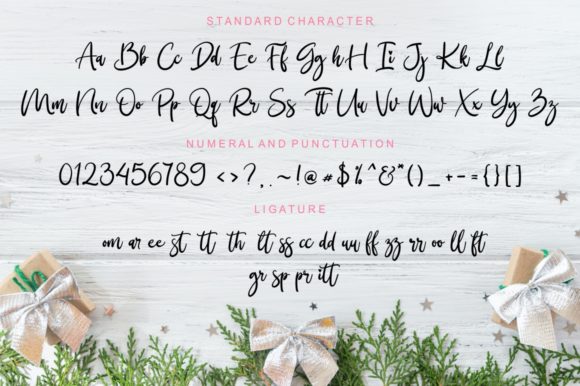 STANDARD CHARACTER
Aa Bb Cc Dd Ee Ff Gg hH Ii Jj Kk Ll
Mm Nn Oo Pp Qq Rr Ss Tt Uu Vv Ww Xx Yy Zz
NUMERAL AND PUNCTUATION
0123456789 <>?,.~!@#$%^&*()_+-={}[]
LIGATURE
om ar ee st tt th lt ss cc dd uu ff zz rr oo ll ft
gr sp pr itt